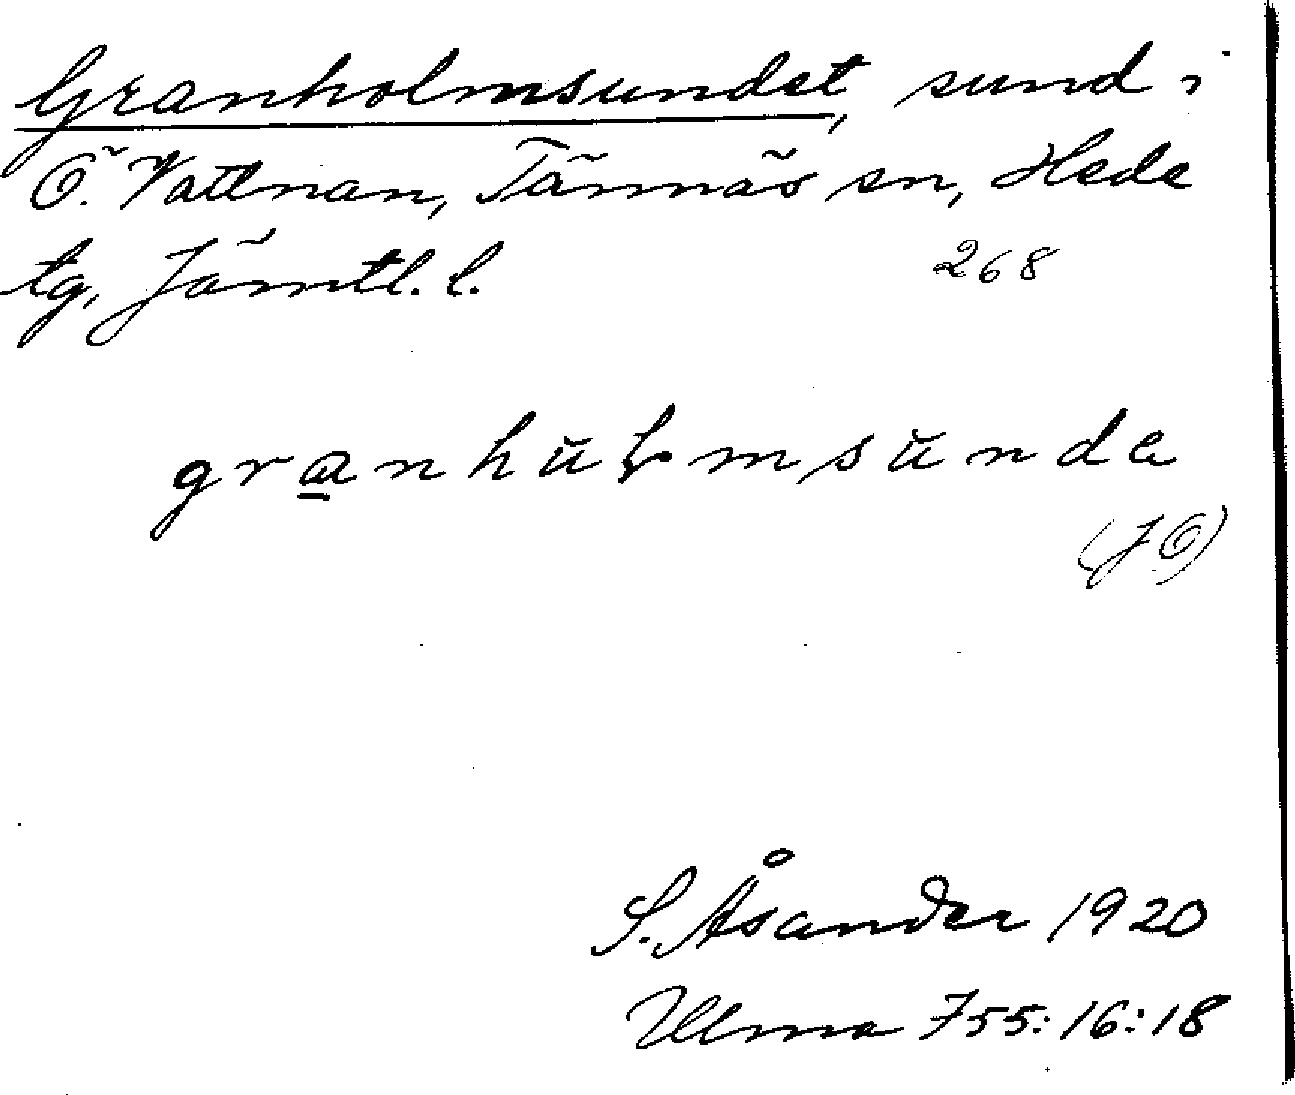 Granholmsundet, sund i
Ö. Vattnan, Tännäs sn, Hede
tg, Jämtl. l. 268
granhŭɫmsŭnde
(JÖ)
S. Åsander 1920
Ulma 755:16:18